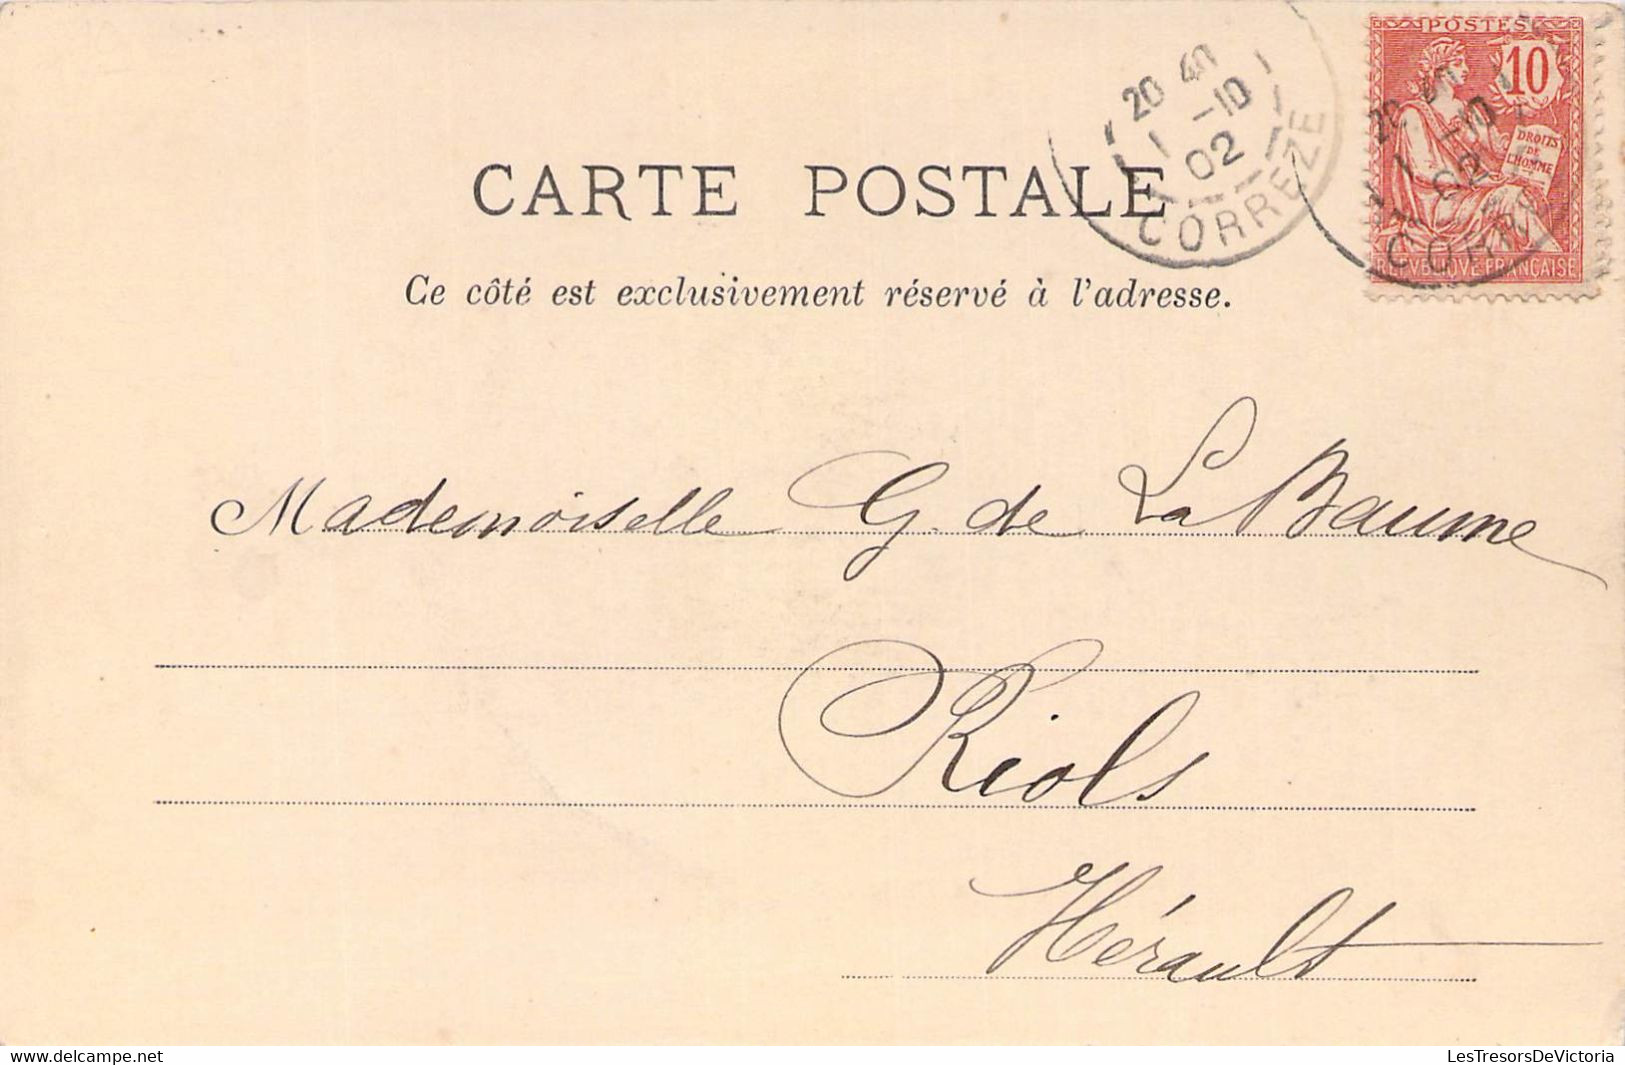 CARTE POSTALE
Ce côté est exclusivement réservé à l'adresse.
20 40
1 -10
02
CORREZE
POSTES
10
DROITS
DE
L'HOMME
REPVBLIQVE FRANÇAISE
20 40
1 -10
02
Mademoiselle G. de La Baume
Riols
Hérault
www.delcampe.net
LesTresorsDeVictoria